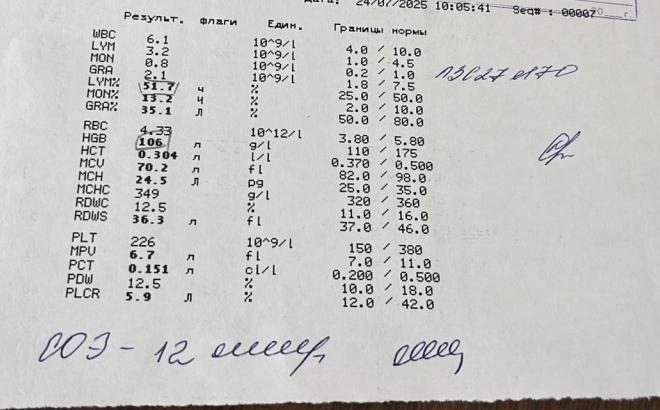 Дата: 24/07/2025 10:05:41 Seq# : 00007
Результ. флаги Един. Границы нормы
WBC 6.1 10^9/l 4.0 / 10.0
LYM 3.2 10^9/l 1.0 / 4.5
MON 0.8 10^9/l 0.2 / 1.0
GRA 2.1 10^9/l 1.8 / 7.5
LYM% 51.7 ч % 25.0 / 50.0
MON% 13.2 ч % 2.0 / 10.0
GRA% 35.1 л % 50.0 / 80.0
RBC 4.33 10^12/l 3.80 / 5.80
HGB 106 л g/l 110 / 175
HCT 0.304 л l/l 0.370 / 0.500
MCV 70.2 л fl 82.0 / 98.0
MCH 24.5 л pg 25.0 / 35.0
MCHC 349 g/l 320 / 360
RDWC 12.5 % 11.0 / 16.0
RDWS 36.3 л fl 37.0 / 46.0
PLT 226 10^9/l 150 / 380
MPV 6.7 л fl 7.0 / 11.0
PCT 0.151 л cl/l 0.200 / 0.500
PDW 12.5 % 10.0 / 18.0
PLCR 5.9 л % 12.0 / 42.0
СОЭ - 12